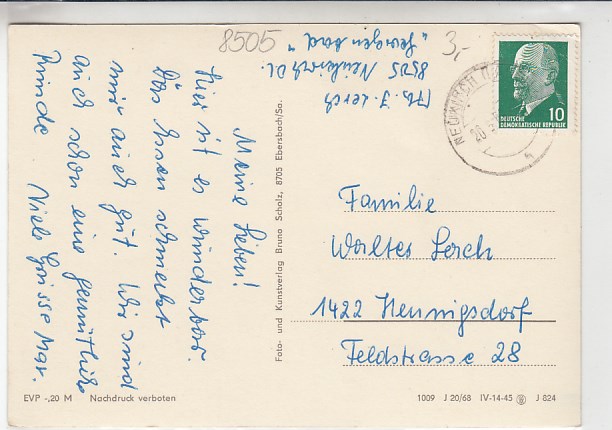 8505
3,-
Abs. J. Lerch
8505 Neukirch OL.
„Georgenbad"
Meine Lieben!
Hier ist es wunderbar.
Das Essen schmeckt
mir auch gut. Wir sind
auch schon eine gemütliche
Runde
Viele Grüsse Mgr.
Foto- und Kunstverlag Bruno Scholz, 8705 Ebersbach/Sa.
NEUKIRCH
20
10
DEUTSCHE
DEMOKRATISCHE REPUBLIK
Familie
Walter Lerch
1422 Hennigsdorf
Feldstrasse 28
EVP -,20 M Nachdruck verboten
1009 J 20/68 IV-14-45 J 824